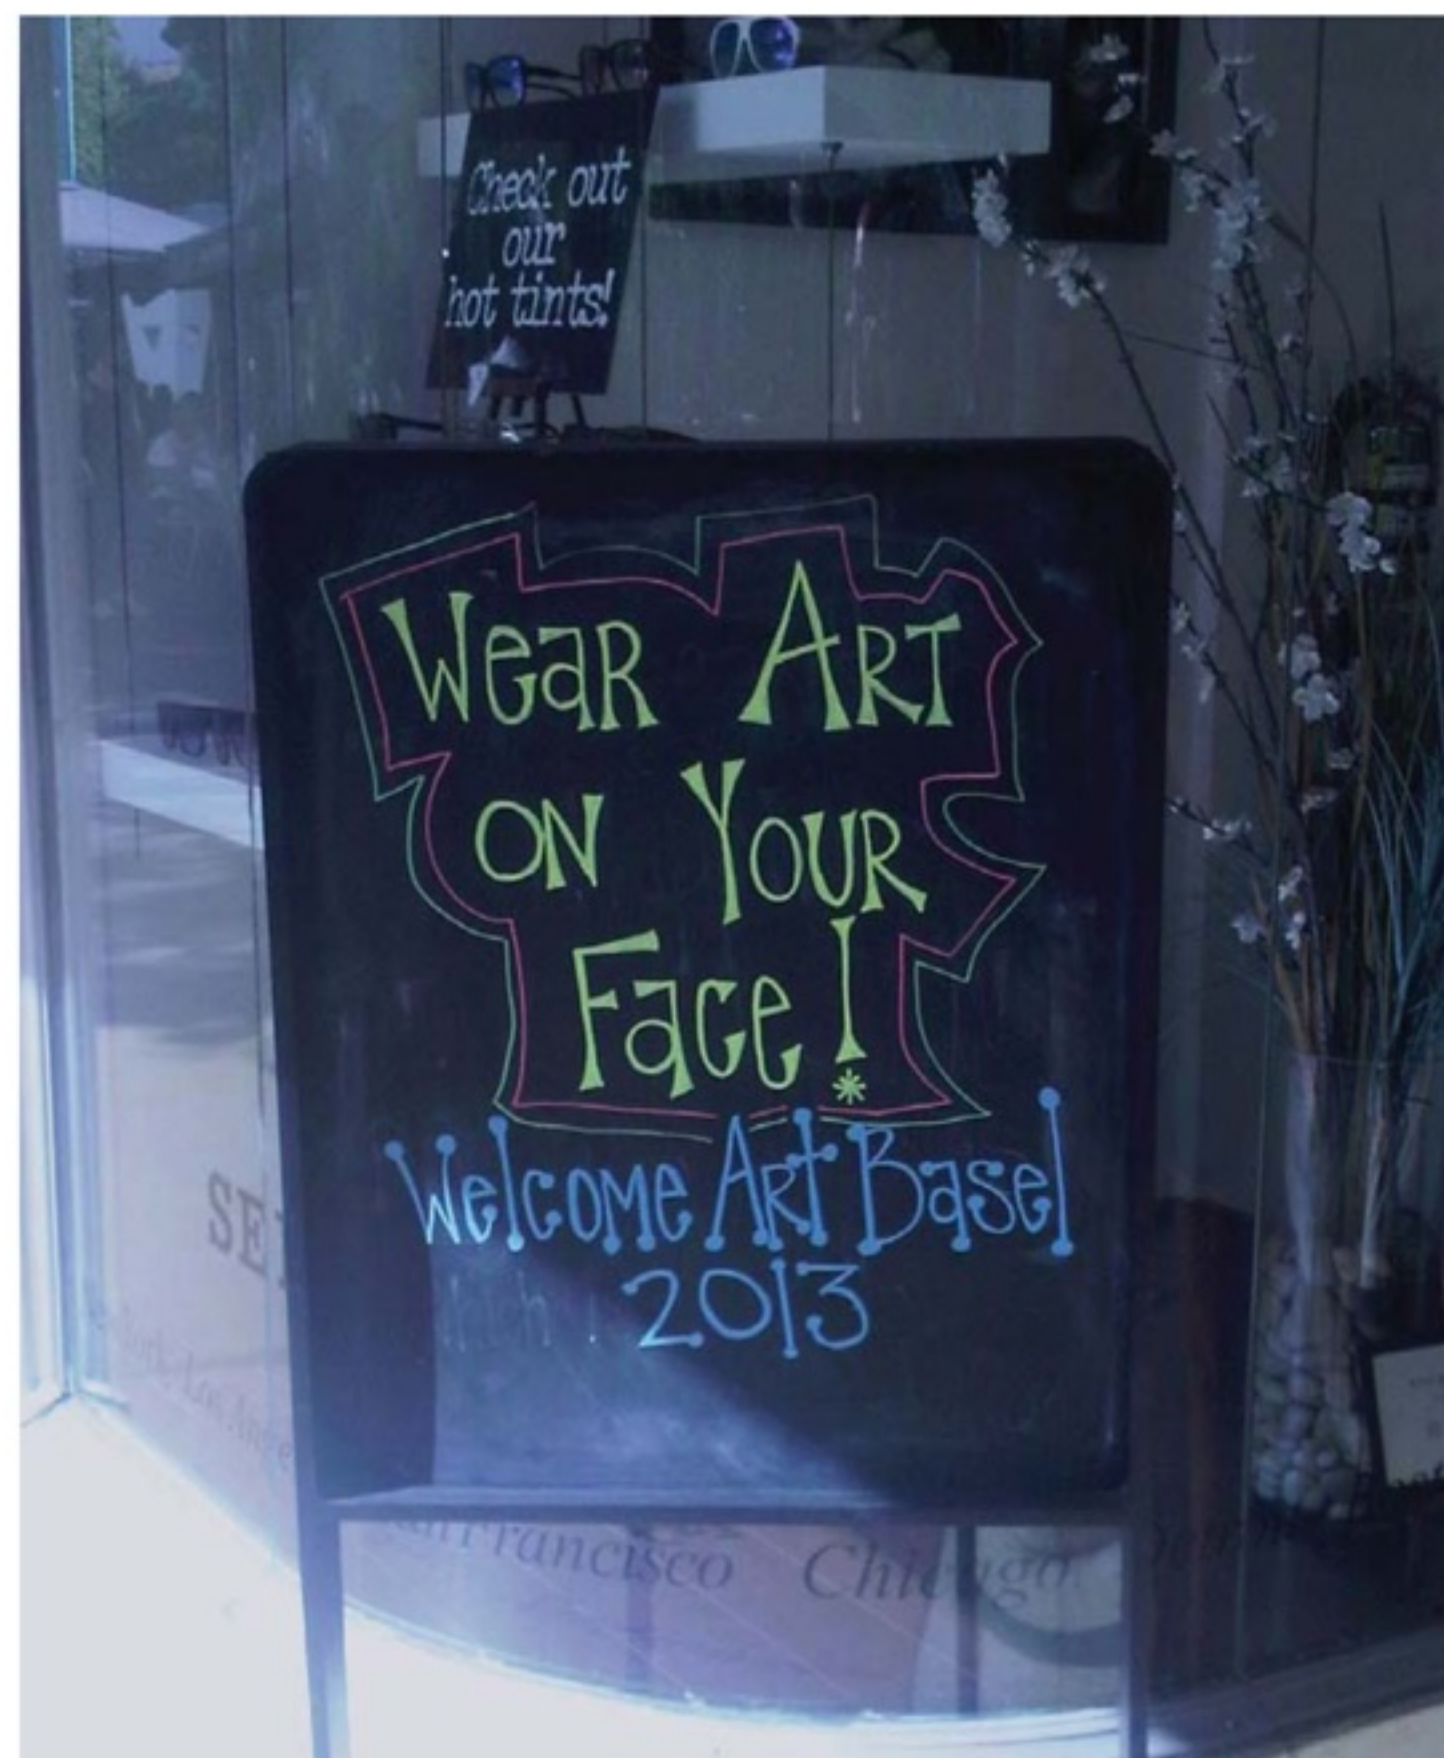 Check out
our
hot tints!
Wear Art
on Your
Face!
Welcome Art Basel
2013
Francisco Chicago